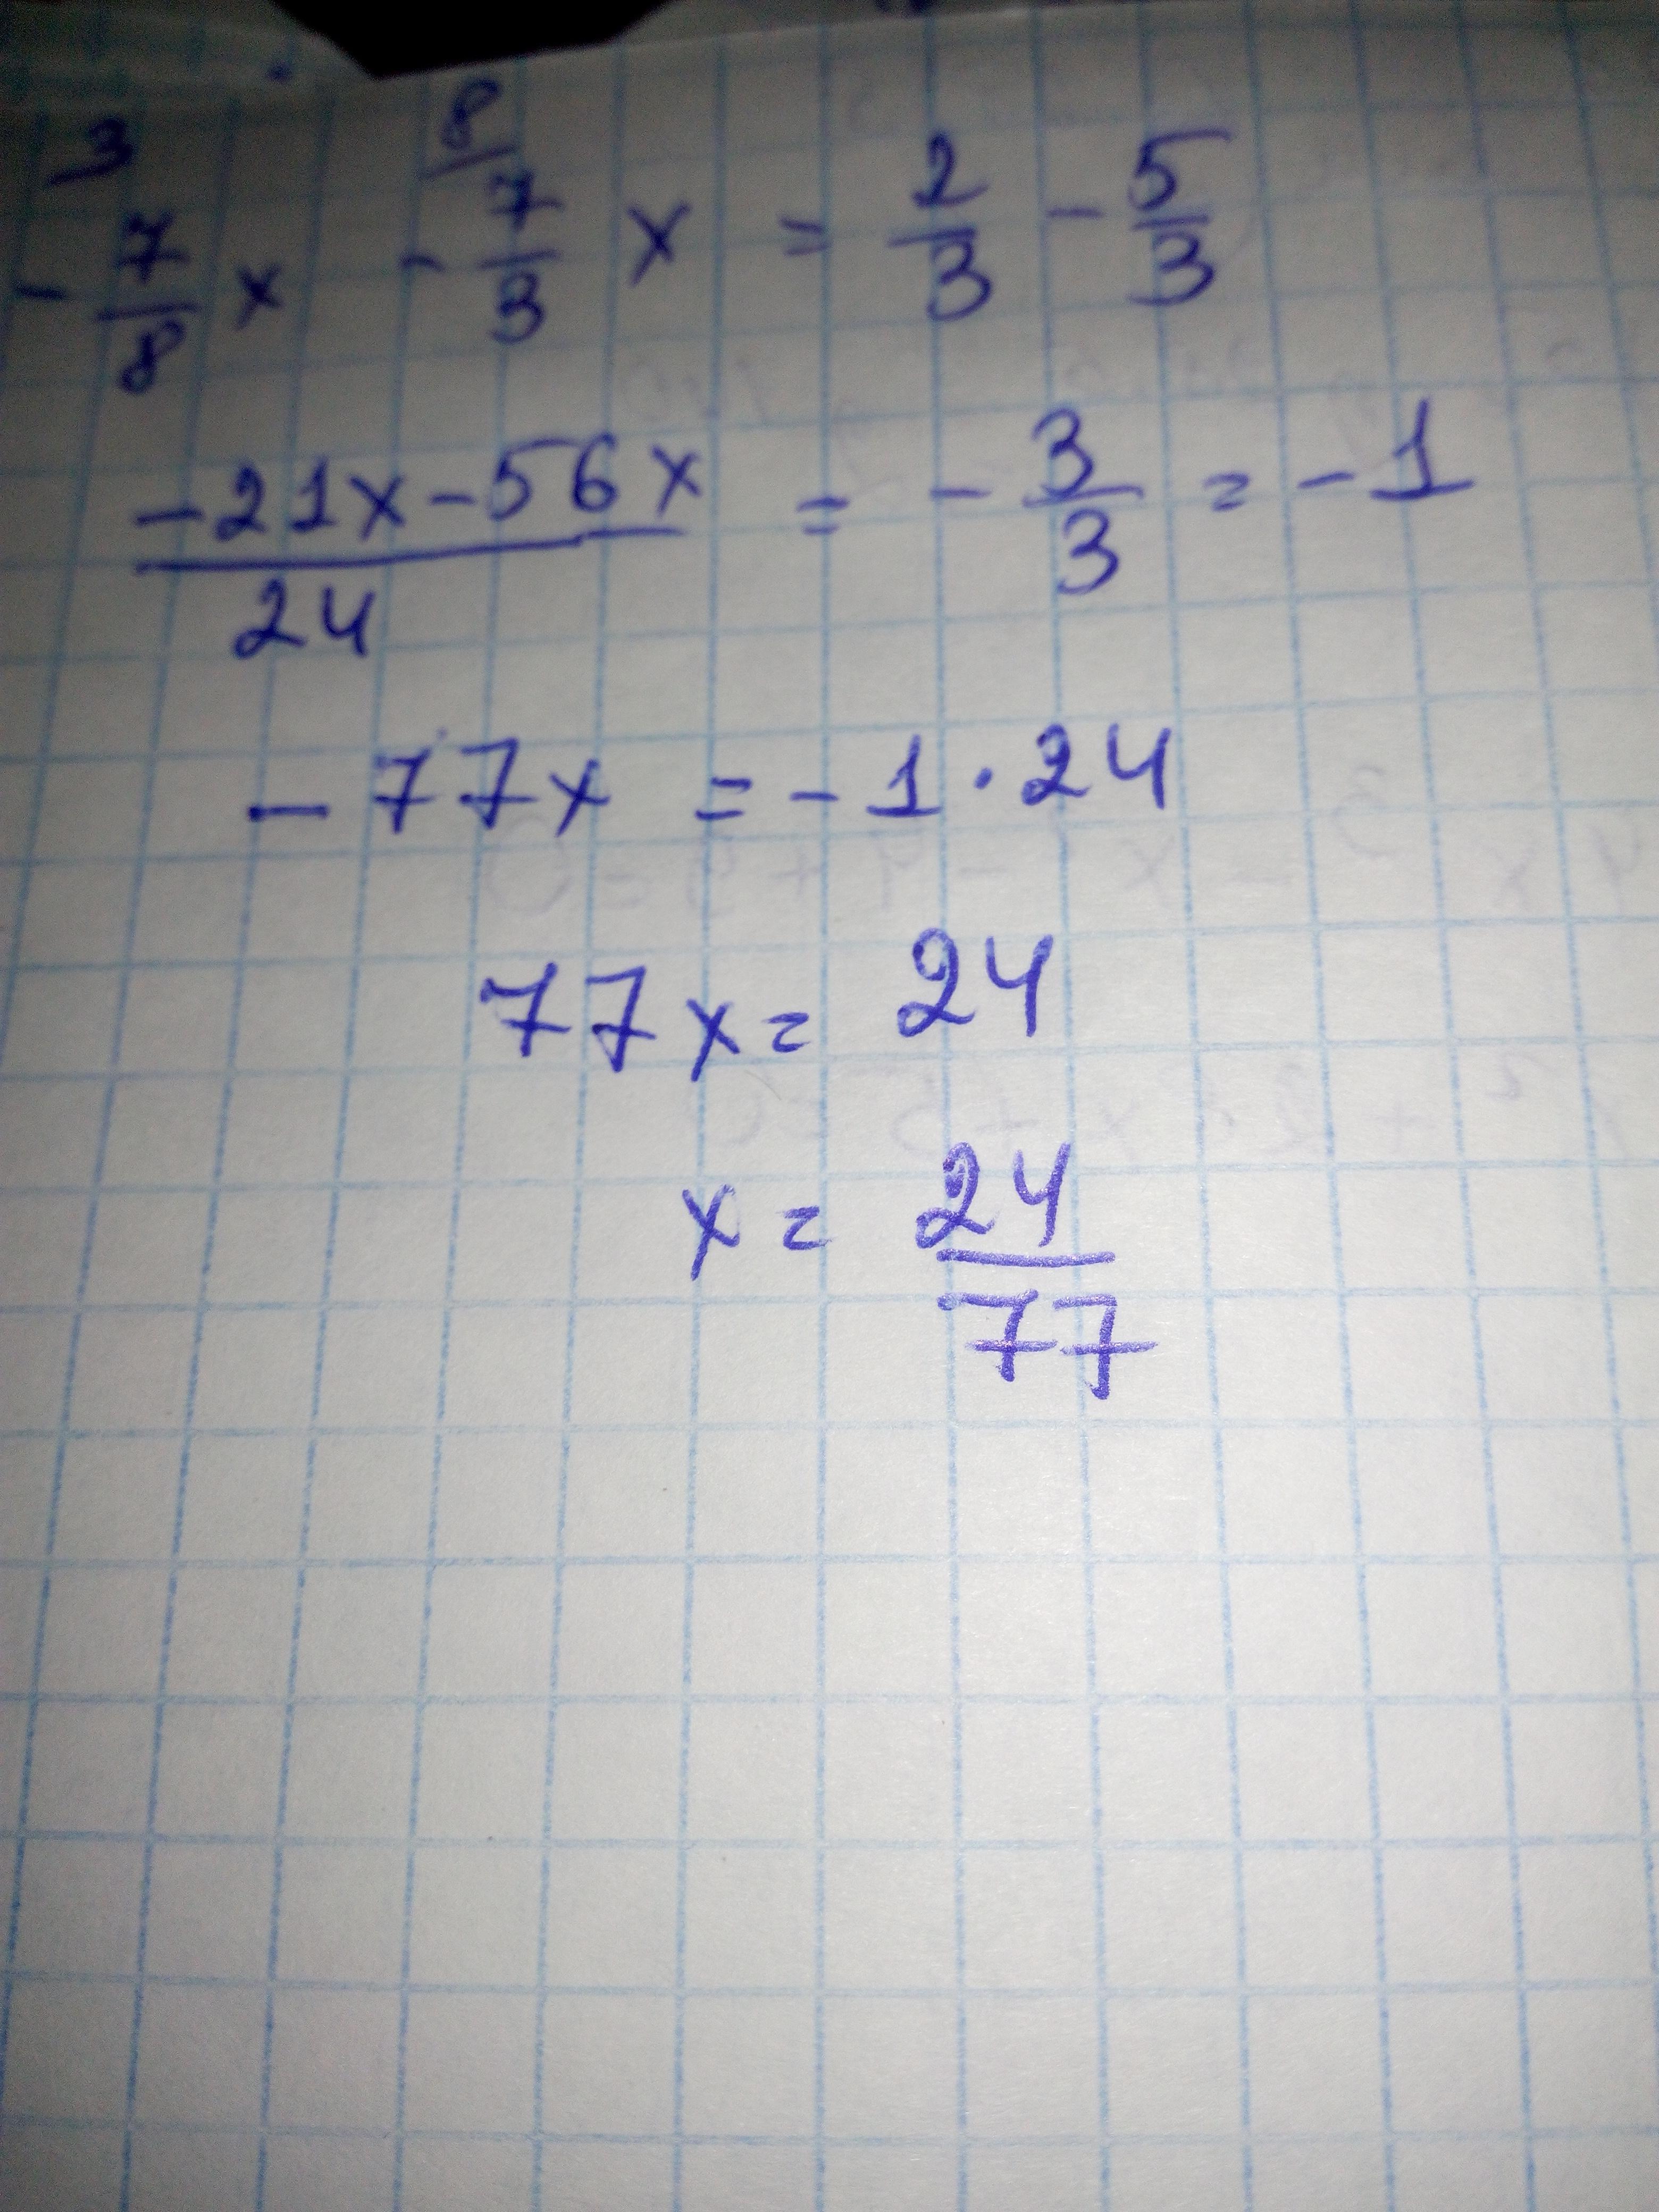 3 8
- 7/8 x - 7/3 x = 2/3 - 5/3
(-21x - 56x)/24 = - 3/3 = - 1
- 77x = - 1 · 24
77x = 24
x = 24/77